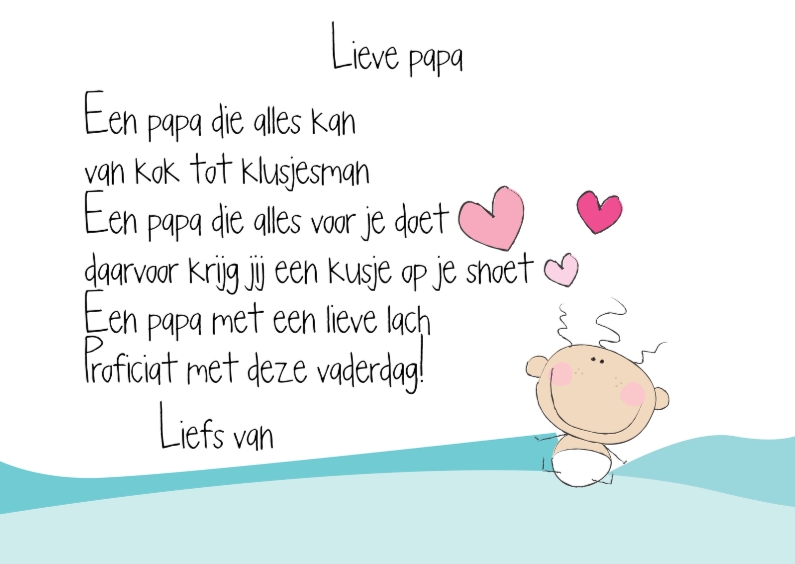 Lieve papa
Een papa die alles kan
van kok tot klusjesman
Een papa die alles voor je doet
daarvoor krijg jij een kusje op je snoet
Een papa met een lieve lach
Proficiat met deze vaderdag!
Liefs van